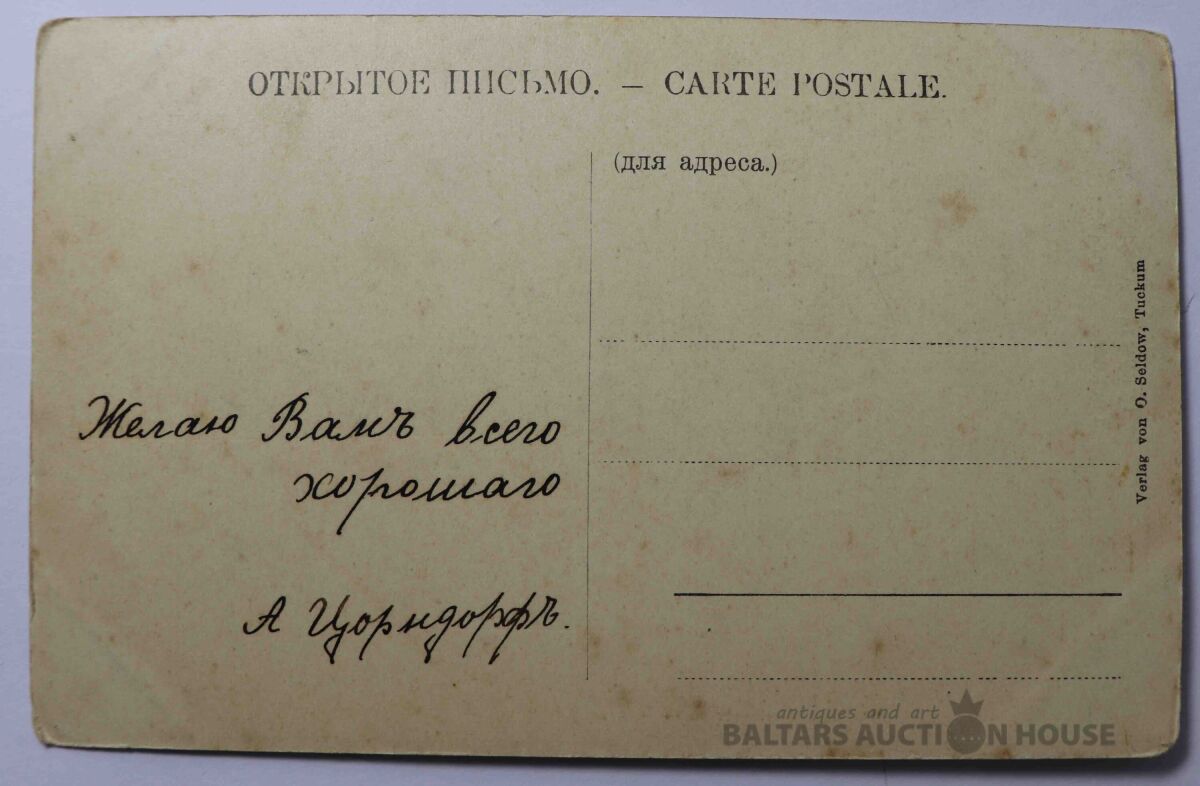 ОТКРЫТОЕ ПИСЬМО. — CARTE POSTALE.
(для адреса.)
Желаю Вамъ всего
хорошаго
А Цорндорфъ.
Verlag von O. Seldow, Tuckum
antiques and art
BALTARS AUCTION HOUSE